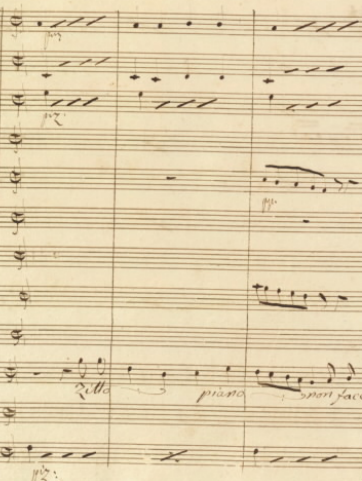 piz
piz:
pp.
Zitto piano non fac
piz: